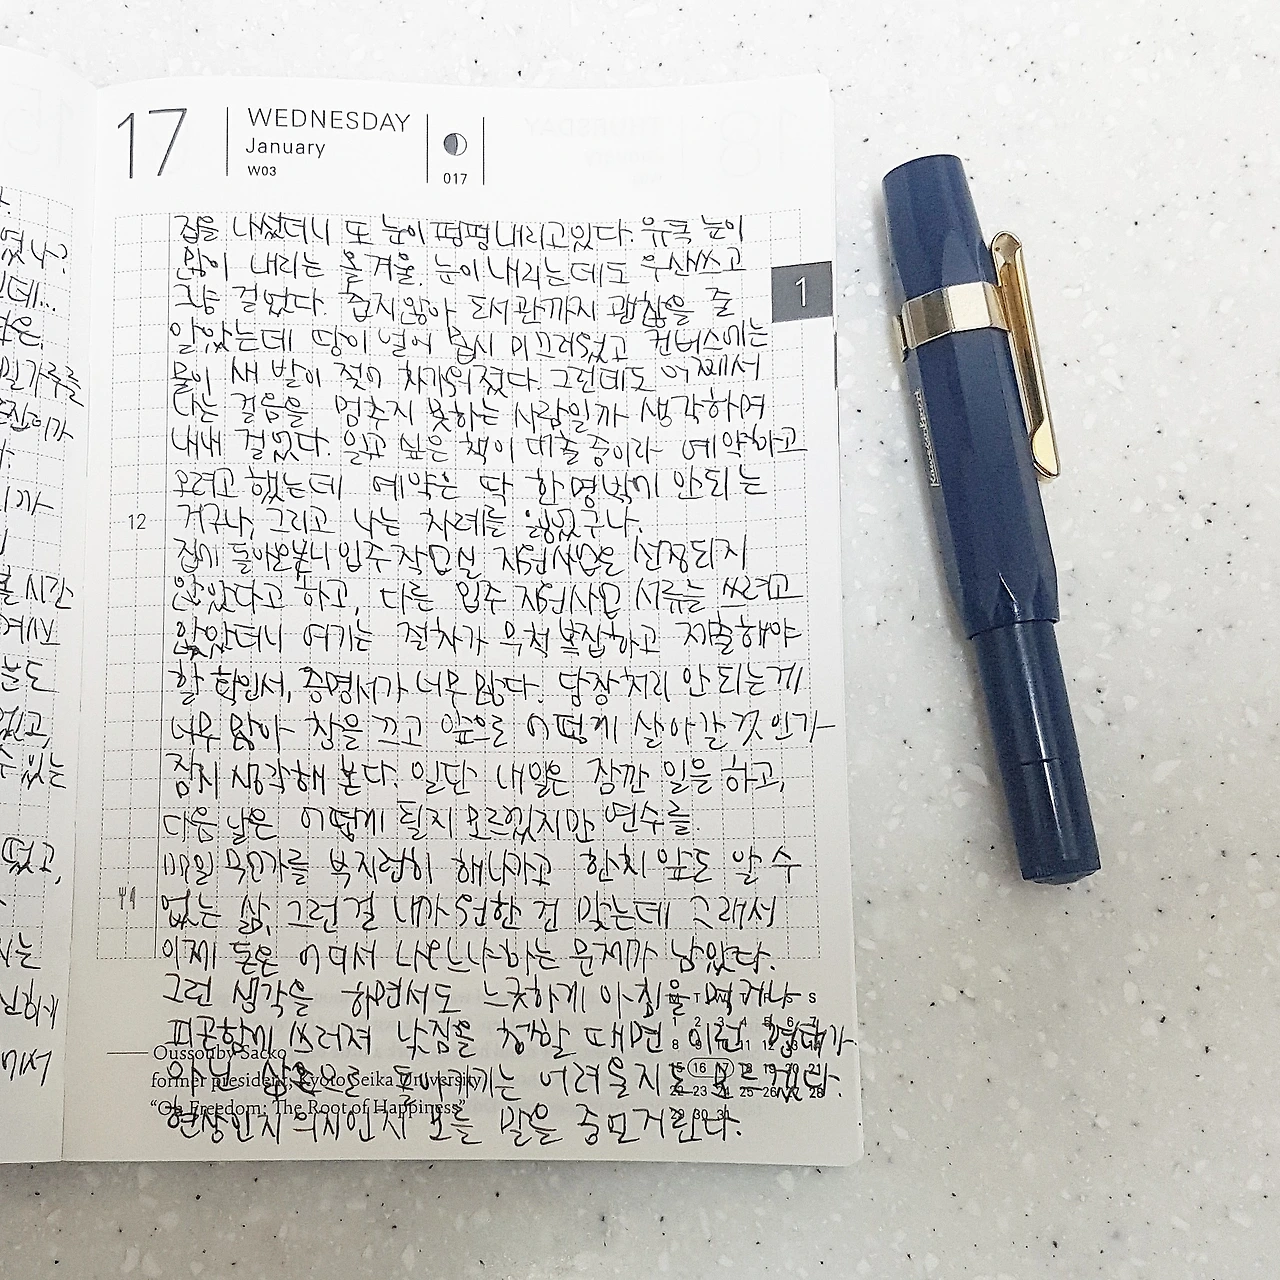 17
WEDNESDAY
January
W03
017
1
집을 나섰더니 또 눈이 펑펑 내리고 있다. 유독 눈이
많이 내리는 올 겨울. 눈이 내리는데도 우산쓰고
그냥 걸었다. 춥지않아 도서관까지 괜찮을 줄
알았는데 땅이 얼어 몹시 미끄러웠고 컨버스에는
물이 새 발이 젖어 차가워졌다. 그런데도 어째서
나는 걸음을 멈추지 못하는 사람일까 생각하며
내내 걸었다. 읽고 싶은 책이 대출중이라 예약하고
오려고 했는데 예약은 딱 한 명밖에 안되는
거구나, 그리고 나는 차례를 잃었구나.
12
집에 돌아와보니 입주 작업실 지원사업은 선정되지
않았다고 하고, 다른 입주 지원사업 서류를 쓰려고
앉았더니 여기는 절차가 무척 복잡하고 제출해야
할 확인서, 증명서가 너무 많다. 당장 처리 안 되는게
너무 많아 창을 끄고 앞으로 어떻게 살아갈 것인가
잠시 생각해 본다. 일단 내일은 잠깐 일을 하고,
다음 날은 어떻게 될지 모르겠지만 연수를.
매일 무언가를 부지런히 해나가고 한치 앞도 알 수
없는 삶, 그런걸 내가 원한 건 맞는데 그래서
이제 돈은 어디서 나오느냐하는 문제가 남았다.
그런 생각을 하면서도 느긋하게 아침을 먹거나
피곤함에 쓰러져 낮잠을 청할 때면 이런 형태가
아닌 삶으로 돌아가기는 어려울지도 모르겠다.
현상인지 의지인지 모를 말을 중얼거린다.
Oussouby Sacko
former president, Kyoto Seika University
"On Freedom: The Root of Happiness"
Kaweco Sport